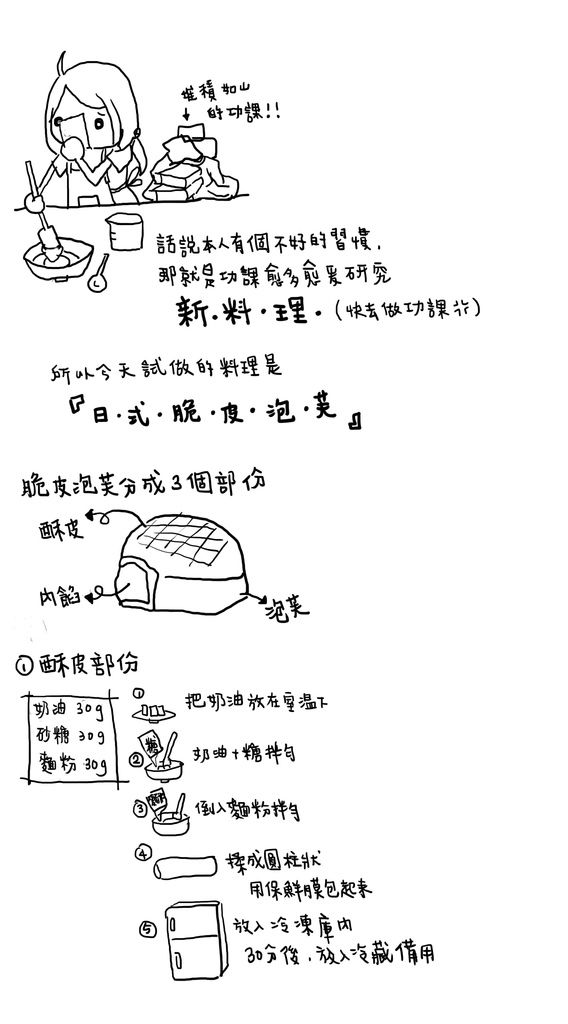 堆積如山
的功課!!
話說本人有個不好的習慣,
那就是功課愈多愈愛研究
新.料.理.(快去做功課行)
所以今天試做的料理是
『日.式.脆.皮.泡.芙』
脆皮泡芙分成3個部份
酥皮
內餡
泡芙
①酥皮部份
奶油 30g
砂糖 30g
麵粉 30g
① 把奶油放在室溫下
糖
② 奶油+糖拌勻
③ 倒入麵粉拌勻
④ 揉成圓柱狀
用保鮮膜包起來
⑤ 放入冷凍庫內
30分後,放入冷藏備用